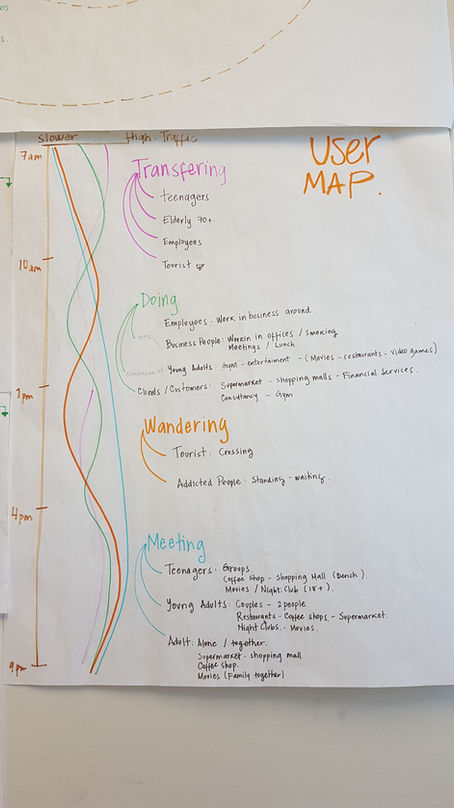 S.
Slower High Traffic.
USER
MAP.
7am
Transfering
Teenagers
Elderly 70+
Employees
Tourist
10am
Doing
Employees - Work in business around.
Business People: Workin in offices / Smoking
Meetings / Lunch.
Young Adults Gym - entertaiment - (Movies - restaurants - video games)
Clients / Customers: Supermarket - shopping malls - Financial Services.
Consultancy - Gym
1pm
Wandering
Tourist: Crossing
Addicted People: Standing - waiting.
4pm
Meeting
Teenagers: Groups
Coffee shop - Shopping Mall (Bench)
Movies / Night Club (18+)
Young Adults Couples - 2 people
Restaurants - Coffee shops - Supermarket
Night Clubs - Movies.
Adult: Alone / together.
Supermarket - shopping mall
Coffee shop.
Movies (Family together)
9pm